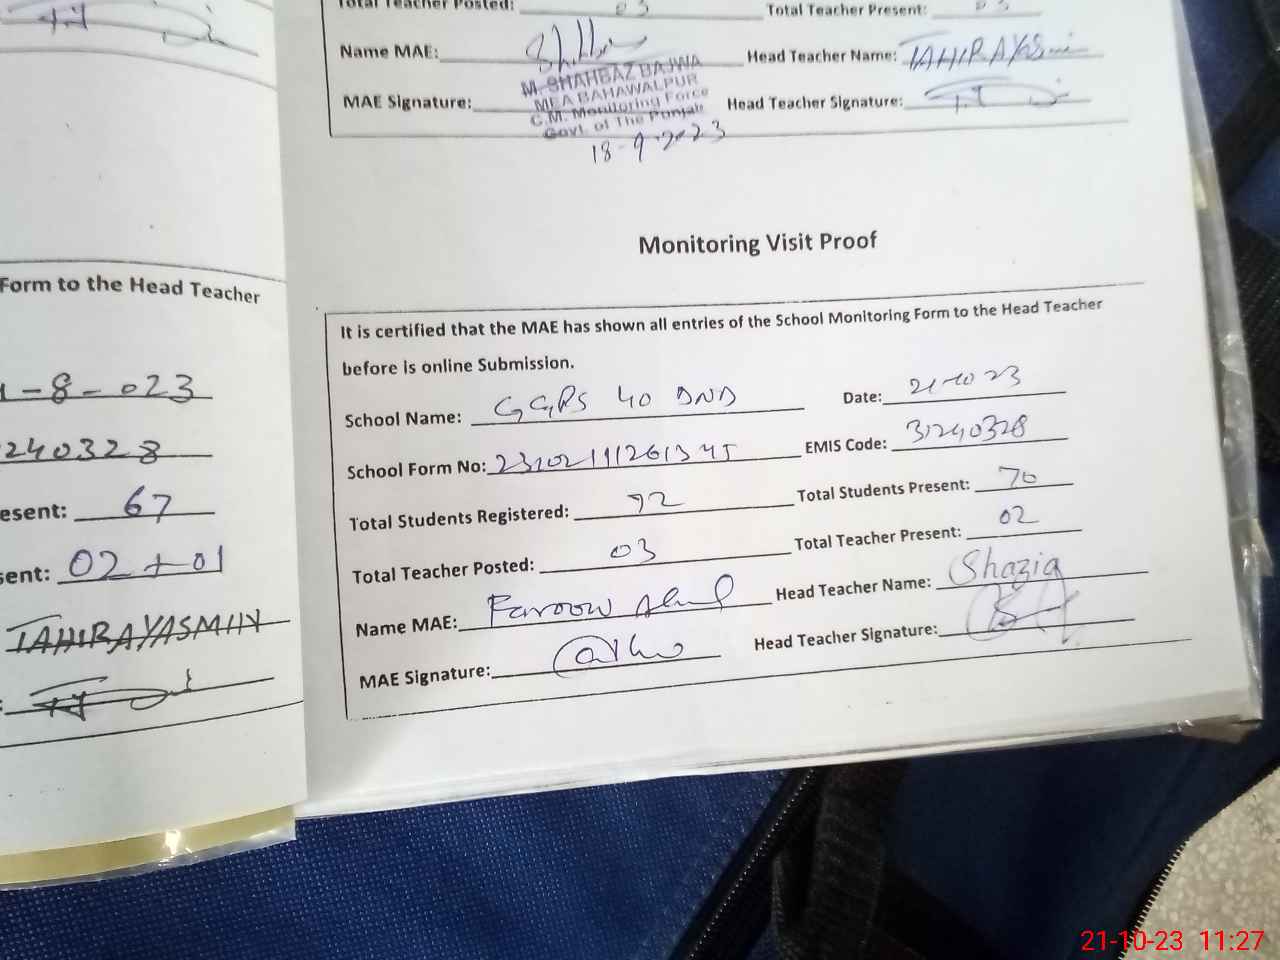 Total Teacher Posted: 03 Total Teacher Present: 03
Name MAE: Head Teacher Name: TAHIRA YASMIN
M. SHAHBAZ BAJWA
MEA BAHAWALPUR
C.M. Monitoring Force
Govt. of The Punjab
MAE Signature: Head Teacher Signature:
18-9-2023
Form to the Head Teacher
-8-023
240328
esent: 67
sent: 02+01
TAHIRA YASMIN
Monitoring Visit Proof
It is certified that the MAE has shown all entries of the School Monitoring Form to the Head Teacher
before is online Submission.
School Name: GGPS 40 DNB Date: 21-10 23
School Form No: EMIS Code: 31240328
Total Students Registered: 92 Total Students Present: 70
Total Teacher Posted: 03 Total Teacher Present: 02
Name MAE: Farooq Head Teacher Name: Shazia
MAE Signature: Head Teacher Signature:
21-10-23 11:27